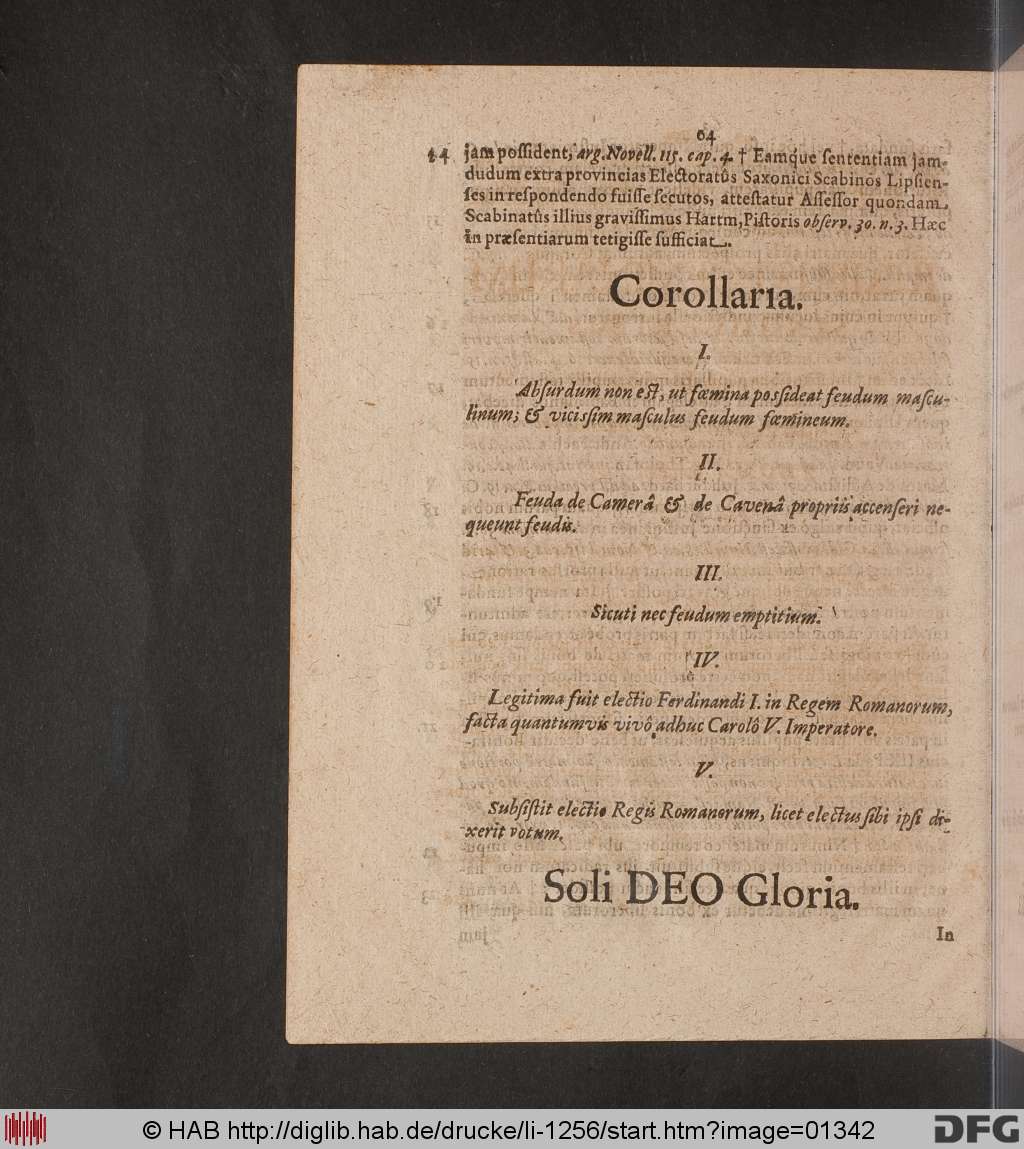 64
24 jam poſſident, arg. Novell. 115. cap. 4. † Eamq́ue ſententiam jam-
dudum extra provincias Electoratûs Saxonici Scabinos Lipſien-
ſes in reſpondendo fuiſſe ſecutos, atteſtatur Aſſeſſor quondam
Scabinatûs illius graviſſimus Hartm, Piſtoris obſerv. 30. n. 3. Hæc
in præſentiarum tetigiſſe ſufficiat.
Corollaria.
I.
Abſurdum non eſt, ut fœmina poſſideat feudum maſcu-
linum; & viciſſim maſculus feudum fœmineum.
II.
Feuda de Camerâ & de Cavenâ propriis accenſeri ne-
queunt feudis.
III.
Sicuti nec feudum emptitium.
IV.
Legitima fuit electio Ferdinandi I. in Regem Romanorum,
facta quantumvis vivô adhuc Carolô V. Imperatore.
V.
Subſiſtit electio Regis Romanorum, licet electus ſibi ipſi di-
xerit votum.
Soli DEO Gloria.
In
© HAB http://diglib.hab.de/drucke/li-1256/start.htm?image=01342
DFG